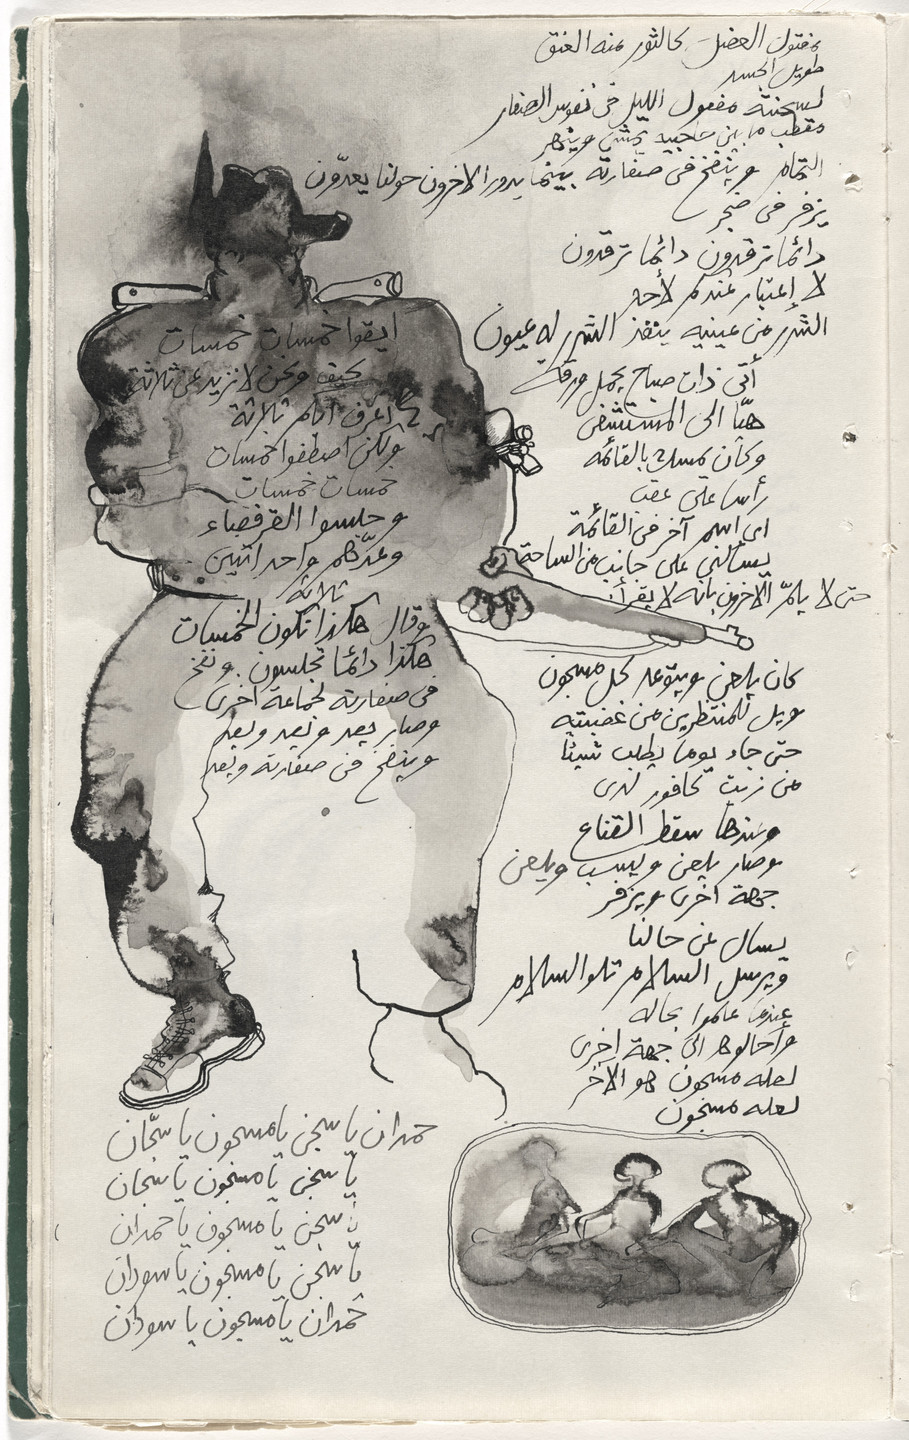 مفتول العضل كالثور منه العنق
طويل الجسد
لسحنته مفعول الليل في نفوس الصغار
مقطب ما بين حاجبيه يمشي وينهر
التمام وينفخ في صفارته بينما يدور الآخرون حولنا يعدّون
يزفر في ضجر
دائما ترقدون دائما ترقدون
لا إعتبار عندكم لأحد
الشرر من عينيه ينفذ الشرر له عيون
أتى ذات صباح يحمل ورقات
هيّا الى المستشفى
وكان مسك بالقائمه
رأسا على عقب
اي اسم آخر في القائمة
يسألني على جانب من الساحة
حتى لا يلمّ الآخرون بانه لا يقرأ
كان يلعن ويتوعد كل مسجون
ويل للمنتظرين من غضبته
حتى جاء يوماً يطلب شيئاً
من زيت كافور لدى
وعندها سقط القناع
وصار يلعن ويسب ويلعن
جهة اخرى ويزفر
يسأل عن حالنا
ويرسل السلام تلو السلام
عندما علموا بحاله
وأحالوه الى جهة اخرى
لعله مسجون هو الآخر
لعله مسجون
ابقوا خمسات خمسات
كيف ونحن لا نزيد عن ثلاثة
اعرف انكم ثلاثة
ولكن اصطفوا خمسات
خمسات خمسات
وجلسوا القرفصاء
وعدّهم واحد اثنين
ثلاثة
وقال هكذا تكون الخمسات
هكذا دائما تجلسون . ونفخ
في صفارته لجماعة اخرى
وصار يعد ويعد ويعد
وينفخ في صفارته ويعد
حمدان يا سجن يا مسجون يا سجّان
يا سجن يا مسجون يا سجان
يا سجن يا مسجون يا حمدان
يا سجن يا مسجون يا سودان
حمدان يا مسجون يا سودان